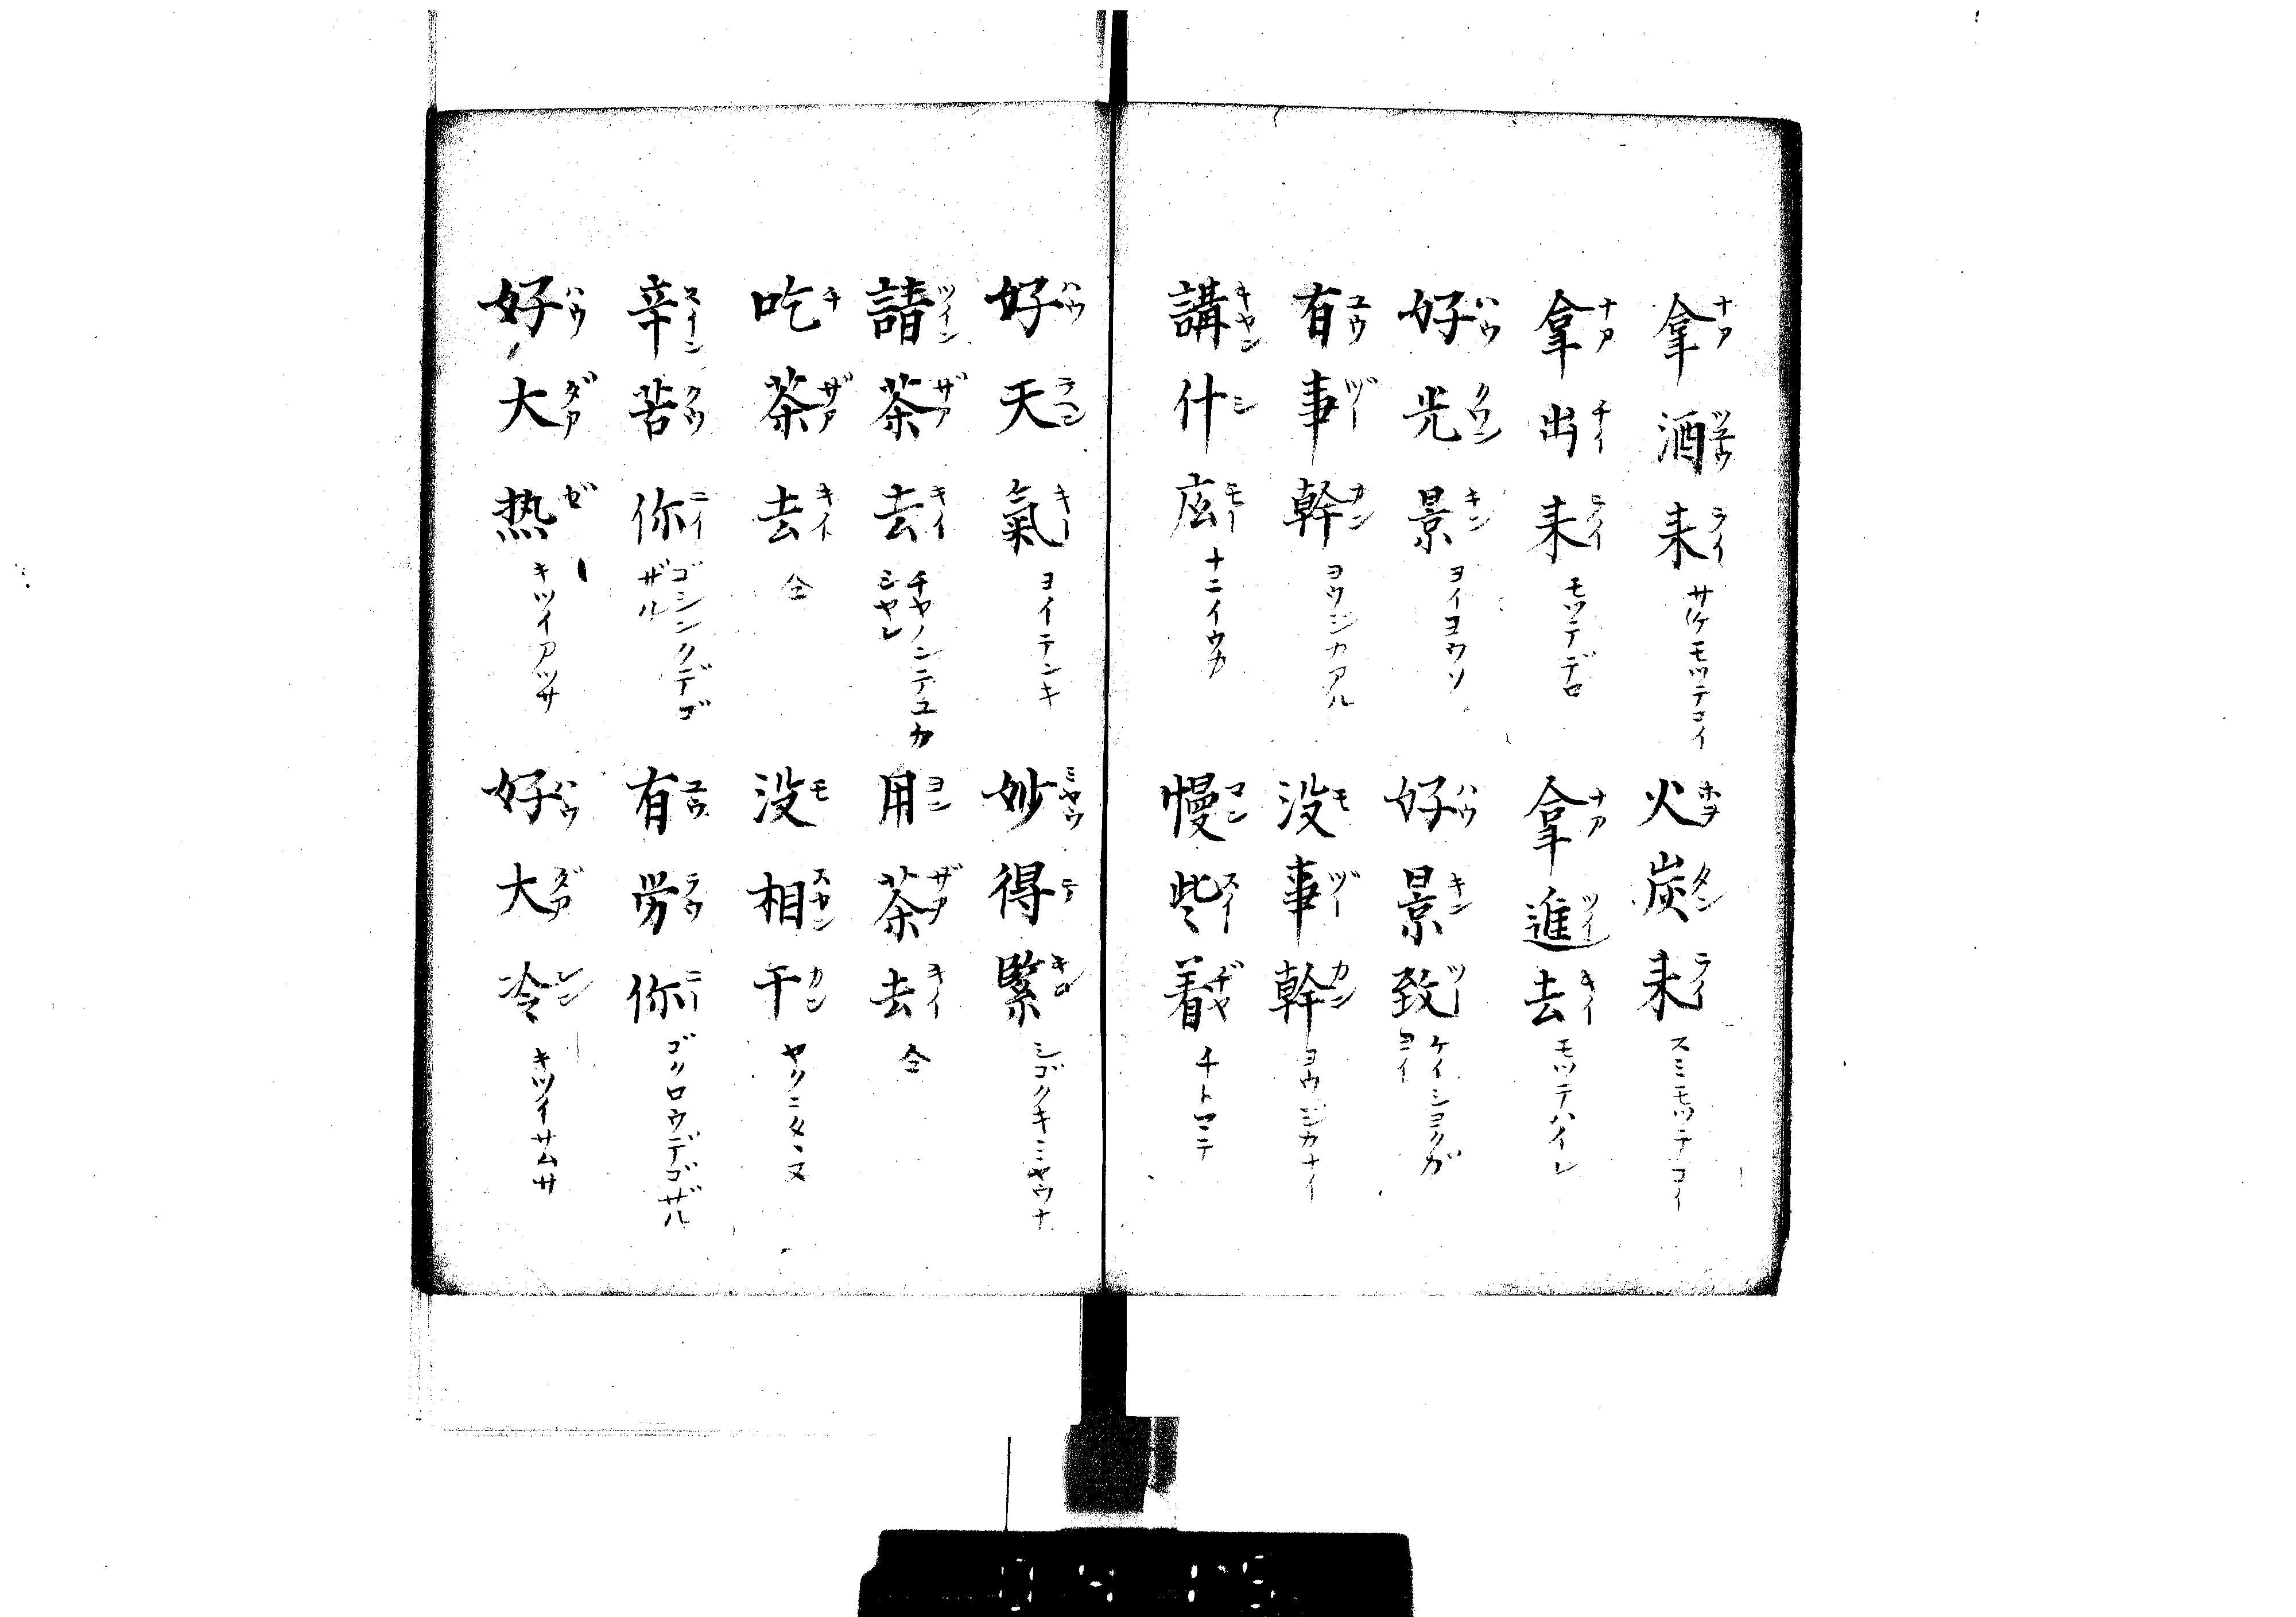 拿酒来 ナア ツエウ ライ サケモツテコイ
火炭来 ホヲ タン ライ スミモツテコイ
拿出来 ナア チイ ライ モツテデロ
拿進去 ナア ツイン キイ モツテハイレ
好光景 ハウ クワン キン ヨイヨウソ
好景致 ハウ キン ツー ケイシヨクガヨイ
有事幹 ユウ ヅー カン ヨウジカアル
没事幹 モ ヅー カン ヨウジカナイ
講什庅 キヤン シ モー ナニイウカ
慢些着 マン スイー ヂヤ チトマテ
好天氣 ハウ テエン キー ヨイテンキ
妙得緊 ミヤウ テ キン シゴクキミヤウナ
請茶去 ツイン ザア キイ チヤノンデユカシヤレ
用茶去 ヨン ザア キイ 仝
吃茶去 チ ザア キイ 仝
没相干 モ スヤン カン ヤクニタヽヌ
辛苦你 スイーン クウ ニイ ゴシンクデゴザル
有労你 ユウ ラウ ニー ゴクロウデゴザル
好大热 ハウ ダア ゼ キツイアツサ
好大冷 ハウ ダア レン キツイサムサ